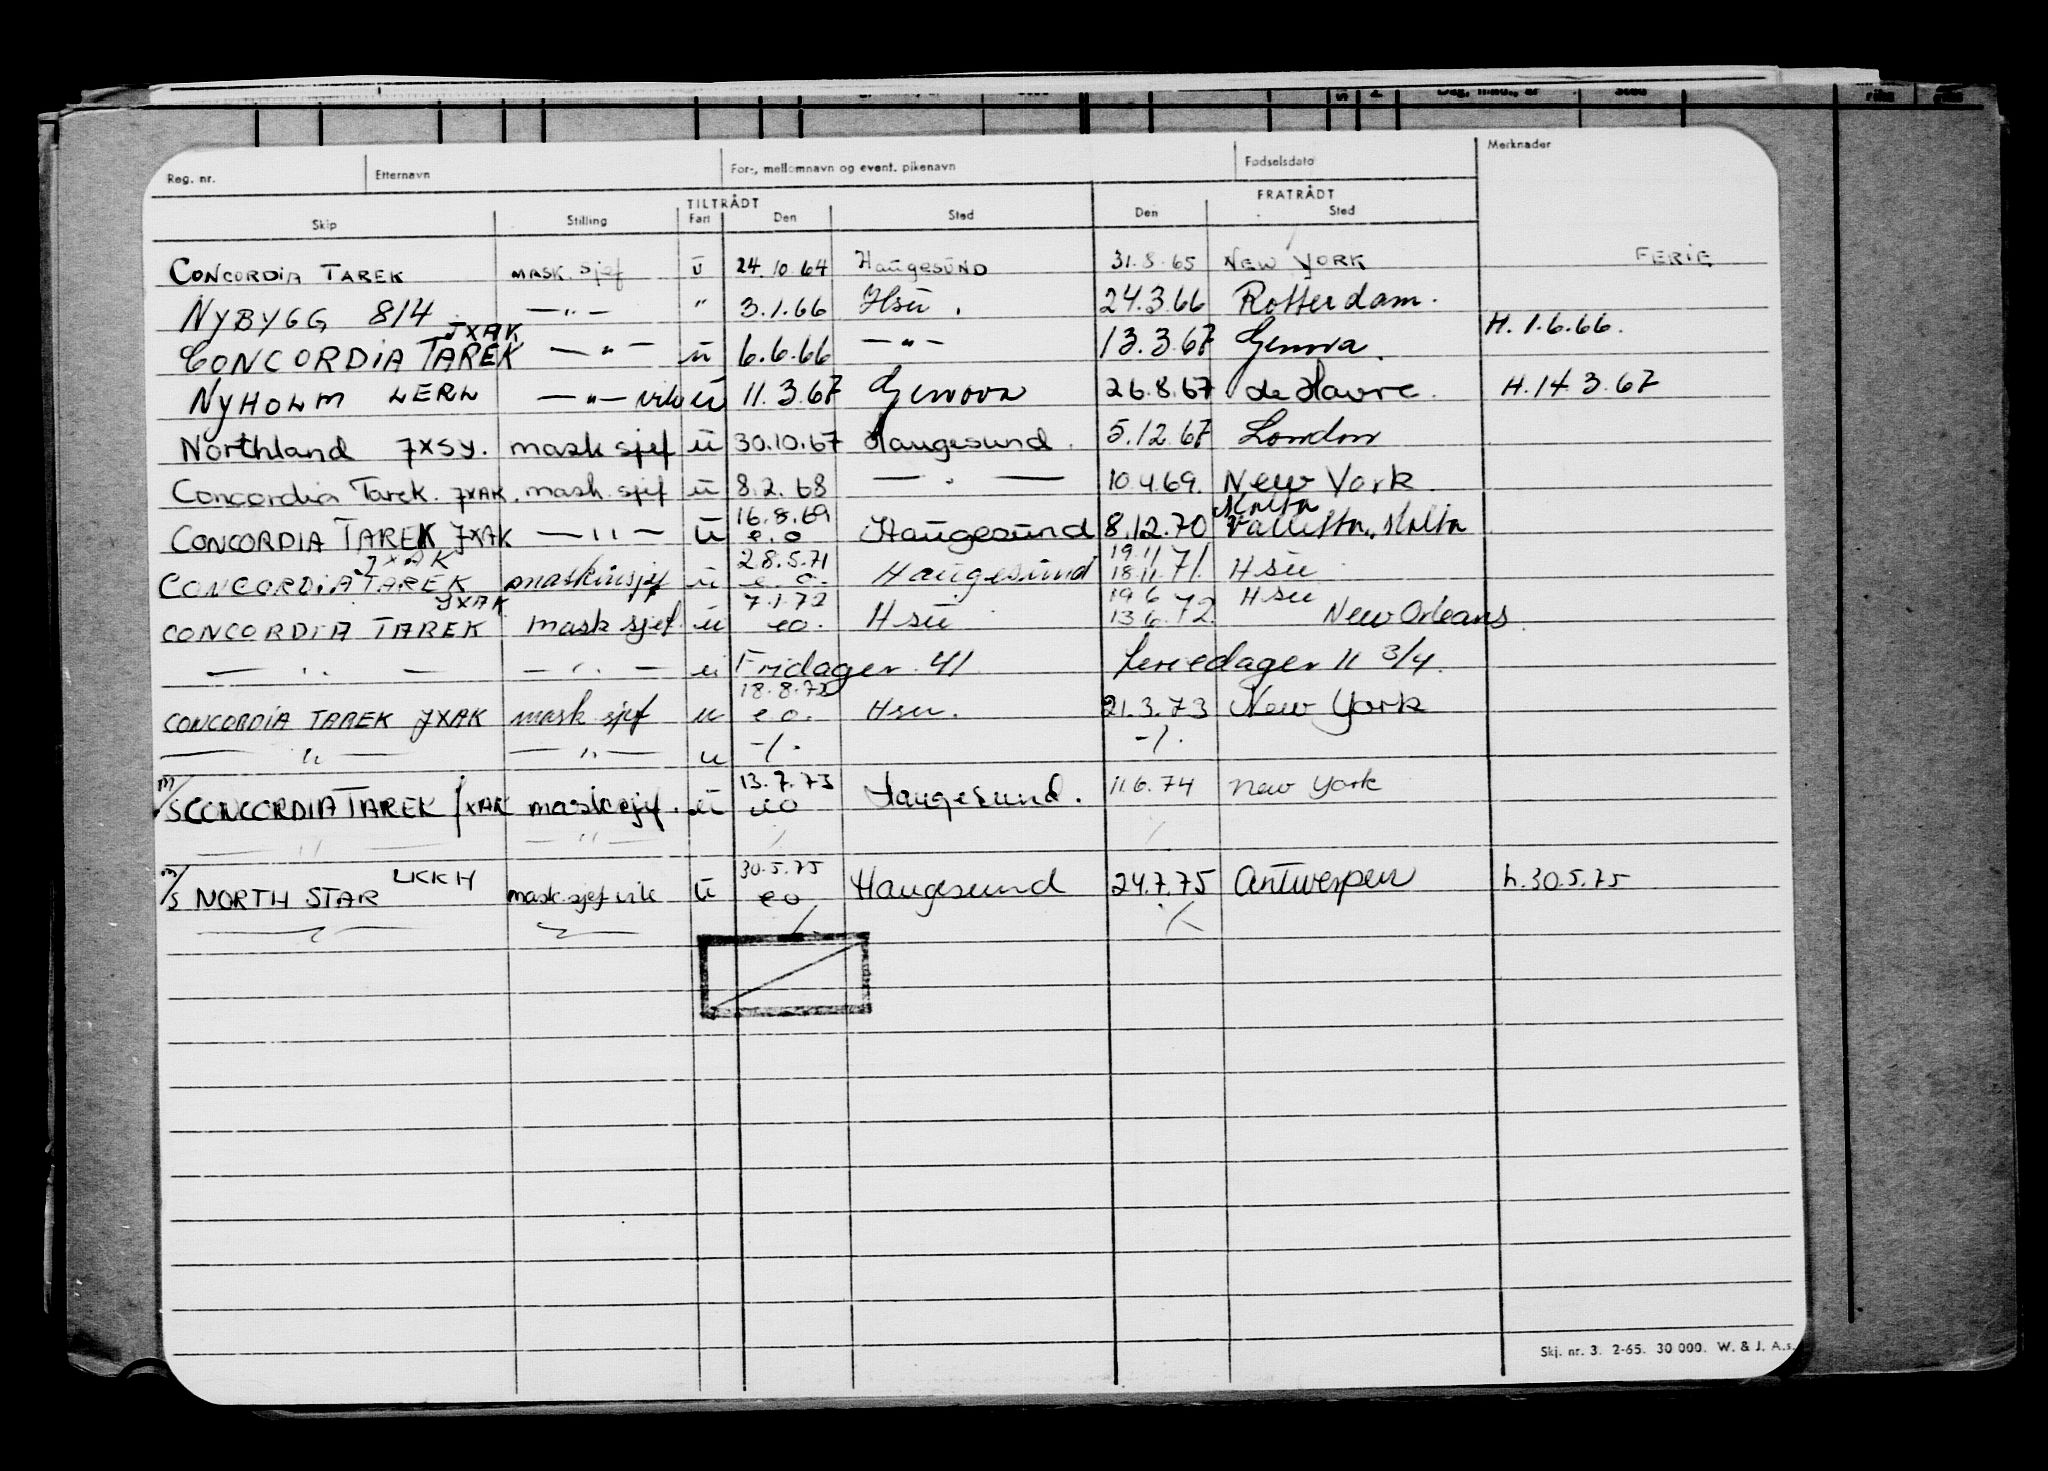 Reg. nr. Etternavn For-, mellomnavn og event. pikenavn Fødselsdato Merknader
TILTRÅDT FRATRÅDT
Skip Stilling Fart Den Sted Den Sted
CONCORDIA TAREK MASK. Sjef ū 24.10.64 HaugesŪND 31.8.65 NEW YORK FERIE
NYBYGG 814 —"— " 3.1.66 Hsū. 24.3.66 Rotterdam.
JXAK
CONCORDIA TAREK —"— ū 6.6.66 —"— 13.3.67 Genova. H. 1.6.66.
NYHOLM LERL —"— vik ū 11.3.67 Genova 26.8.67 Le Havre. H. 14.3.67
Northland JXSY. mask sjef ū 30.10.67 Haugesund. 5.12.67 London
Concordia Tarek. JXAK. mask. sjef ū 8.2.68 —"— 10.4.69. New York.
16.8.69 Malta
CONCORDIA TAREK JXAK —"— ū e.o Haugesūnd 8.12.70 Valletta. Malta
JXAK 28.5.71 19.11
CONCORDIA TAREK maskinsjef ū e.o. Haugesūnd 18.11.71. Hsū
JXAK 7.1.72 19.6 Hsū
CONCORDIA TAREK mask sjef ū eo. Hsū 13.6.72. New Orleans.
—"— —"— ū Fridager 41 feriedager 11 3/4.
18.8.72
CONCORDIA TAREK JXAK mask sjef u e.o. Hsu. 21.3.73 New York
—"— —"— u -/. -/.
13.7.73
M/S CONCORDIA TAREK JXAK mask sjef. ū eo Haugesund. 11.6.74 New York
—"— —"— / /
30.5.75
M/S NORTH STAR LKKH mask. sjef vik ū eo Haugesund 24.7.75 Antwerpen h. 30.5.75
—"— —"— ./. ./.
Skj. nr. 3. 2-65. 30 000. W. & J. A.s.